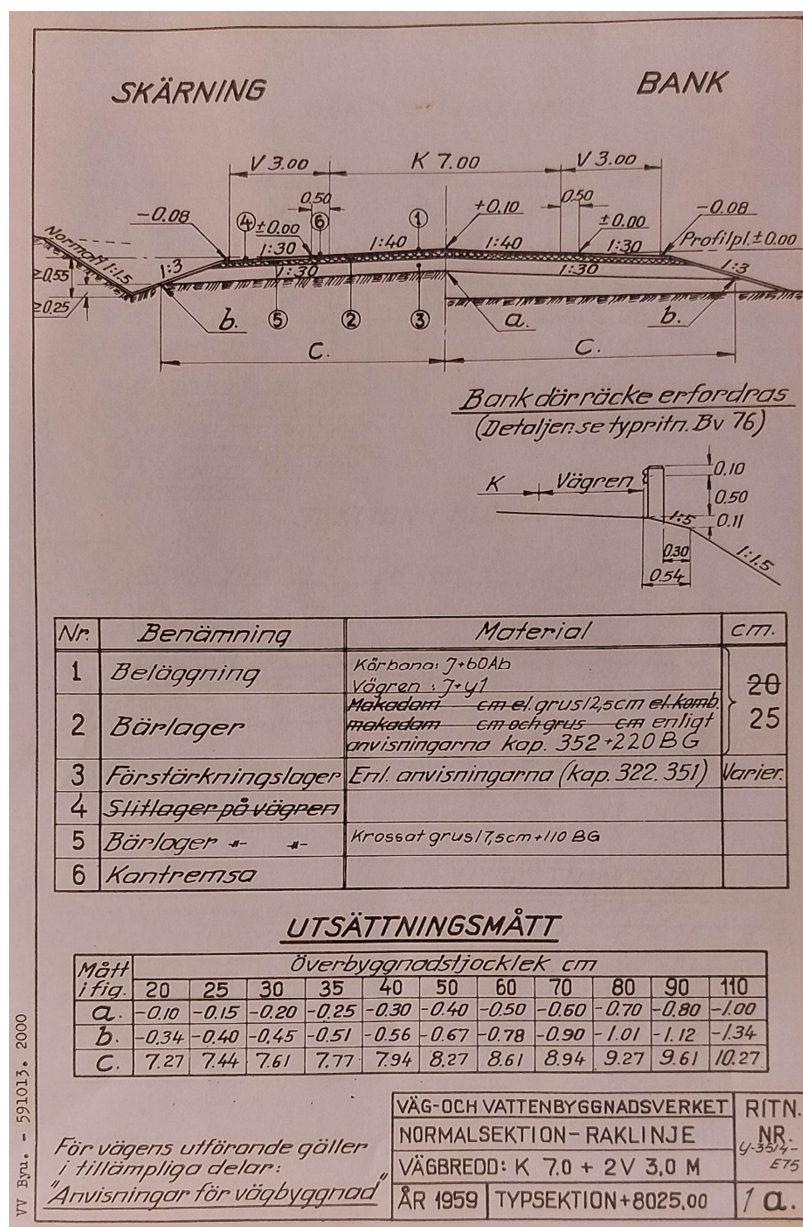 SKÄRNING
BANK
V 3.00
K 7.00
V 3.00
0.50
0.50
-0.08
④
±0.00
⑥
①
+0.10
±0.00
-0.08
1:30
1:40
1:40
1:30
Profilpl.±0.00
Normalt 1:1.5
1:3
1:30
1:30
1:3
≥0.55
≥0.25
b.
⑤
②
③
a.
b.
C.
C.
Bank där räcke erfordras
(Detaljer. se typritn. Bv 76)
K
Vägren
0.10
0.50
1:5
0.11
0.30
1:1.5
0.54
Nr. Benämning Material cm.
1 Beläggning Körbana: J+60Ab
Vägren : J+y1
20
25
2 Bärlager Makadam cm el. grus 12,5cm el. komb.
makadam cm och grus cm enligt
anvisningarna kap. 352+220 BG
3 Förstärkningslager Enl. anvisningarna (kap. 322. 351) Varier.
4 Slitlager på vägren
5 Bärlager -"- -"- Krossat grus 17,5cm+110 BG
6 Kantremsa
UTSÄTTNINGSMÅTT
Mått i fig. Överbyggnadstjocklek cm
20 25 30 35 40 50 60 70 80 90 110
a. -0.10 -0.15 -0.20 -0.25 -0.30 -0.40 -0.50 -0.60 -0.70 -0.80 -1.00
b. -0.34 -0.40 -0.45 -0.51 -0.56 -0.67 -0.78 -0.90 -1.01 -1.12 -1.34
C. 7.27 7.44 7.61 7.77 7.94 8.27 8.61 8.94 9.27 9.61 10.27
För vägens utförande gäller
i tillämpliga delar:
"Anvisningar för vägbyggnad"
VÄG-OCH VATTENBYGGNADSVERKET
NORMALSEKTION-RAKLINJE
VÄGBREDD: K 7.0 + 2V 3,0 M
ÅR 1959 TYPSEKTION+8025,00
RITN.
NR.
E75
1 a.
VV Byu. - 591013. 2000